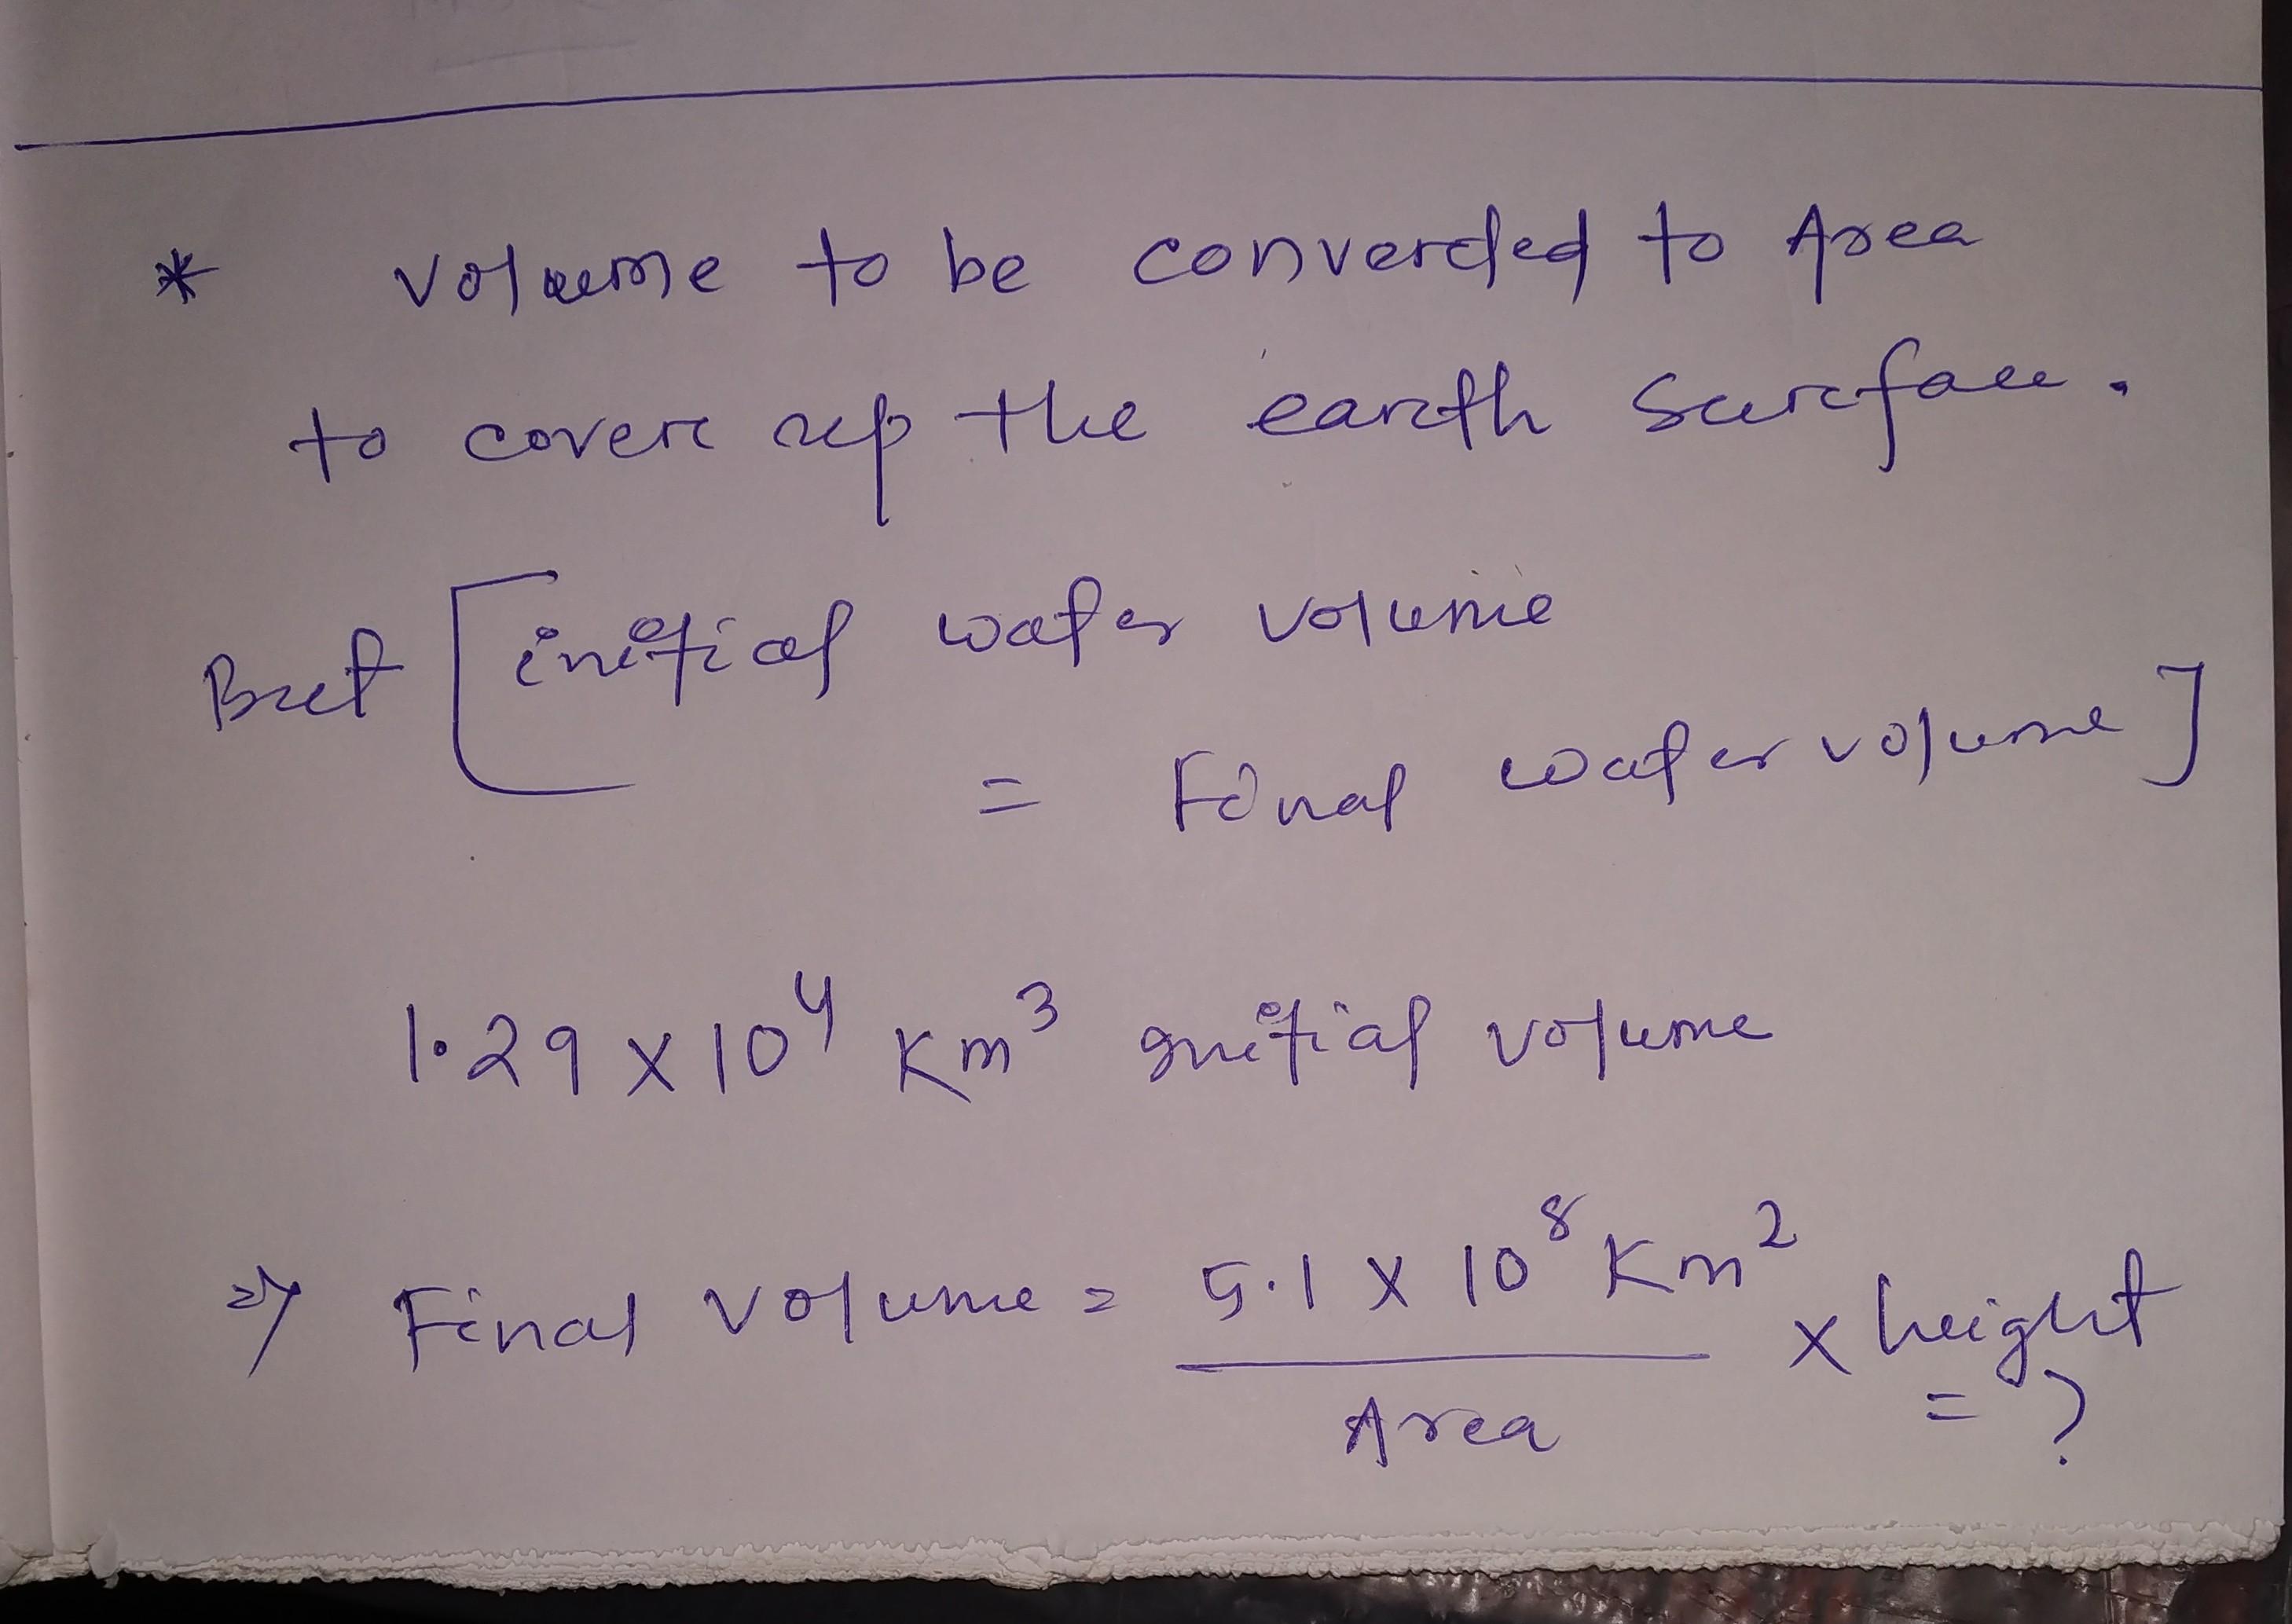 * volume to be converted to Area
to cover up the earth surface.
But [initial water volume
= Final water volume]
1.29 x 10⁴ Km³ initial volume
⇒ Final volume = 5.1 x 10⁸ Km² x height
Area = ?